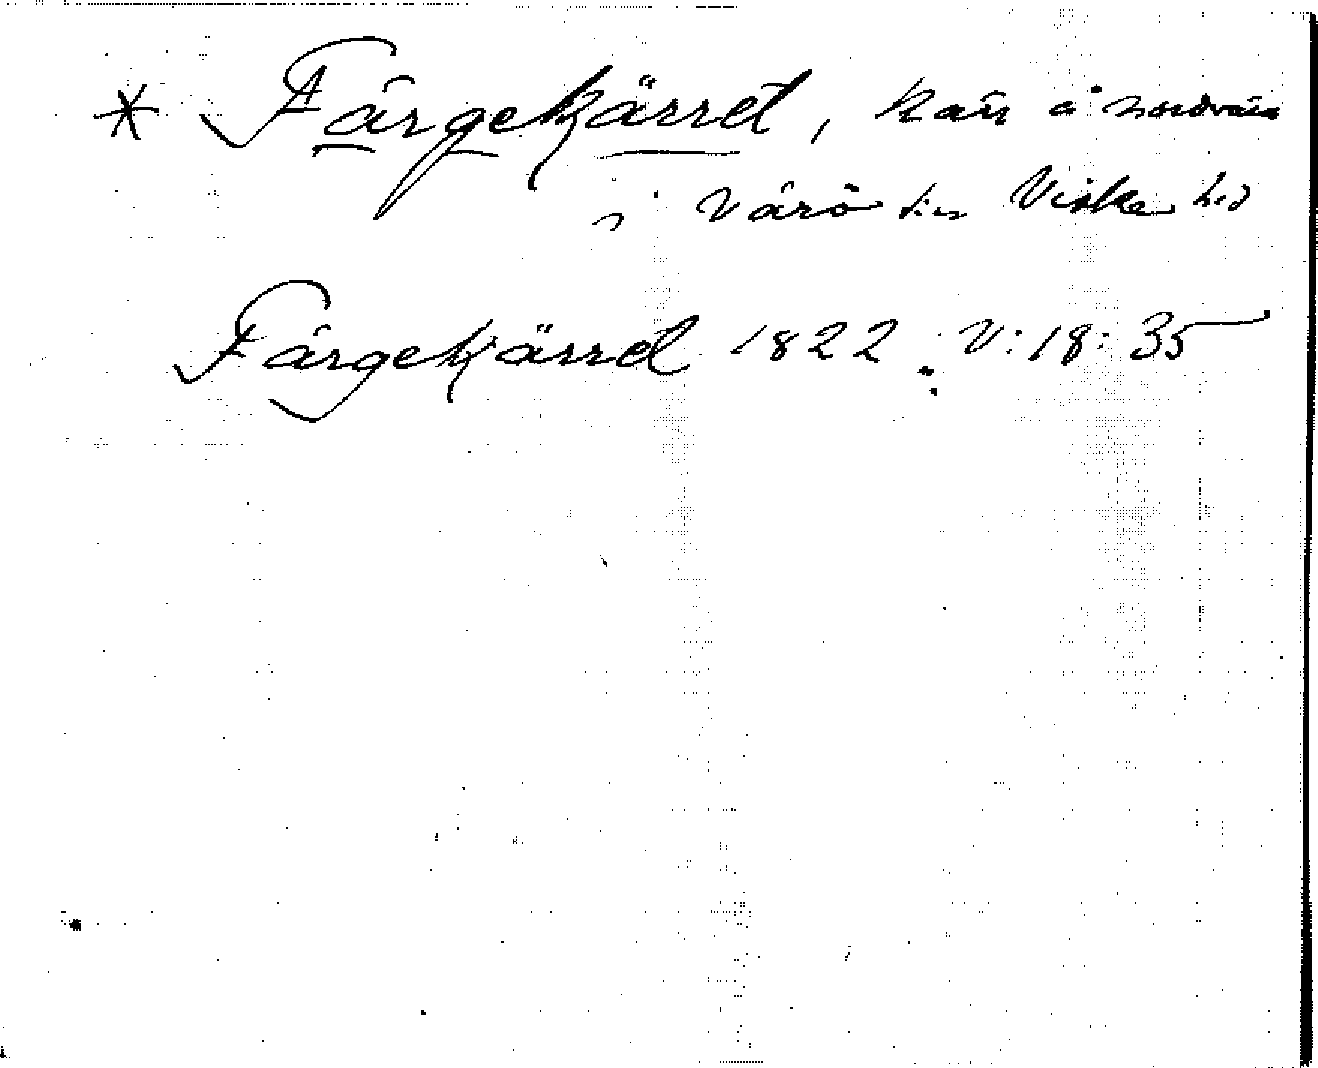 * Färgekärret, kärr å Nordvära
i Värö sn Viske hd
Färgekärret 1822 V:18:35